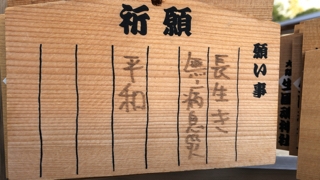 祈願
願い事
長生き
無病息災
平和